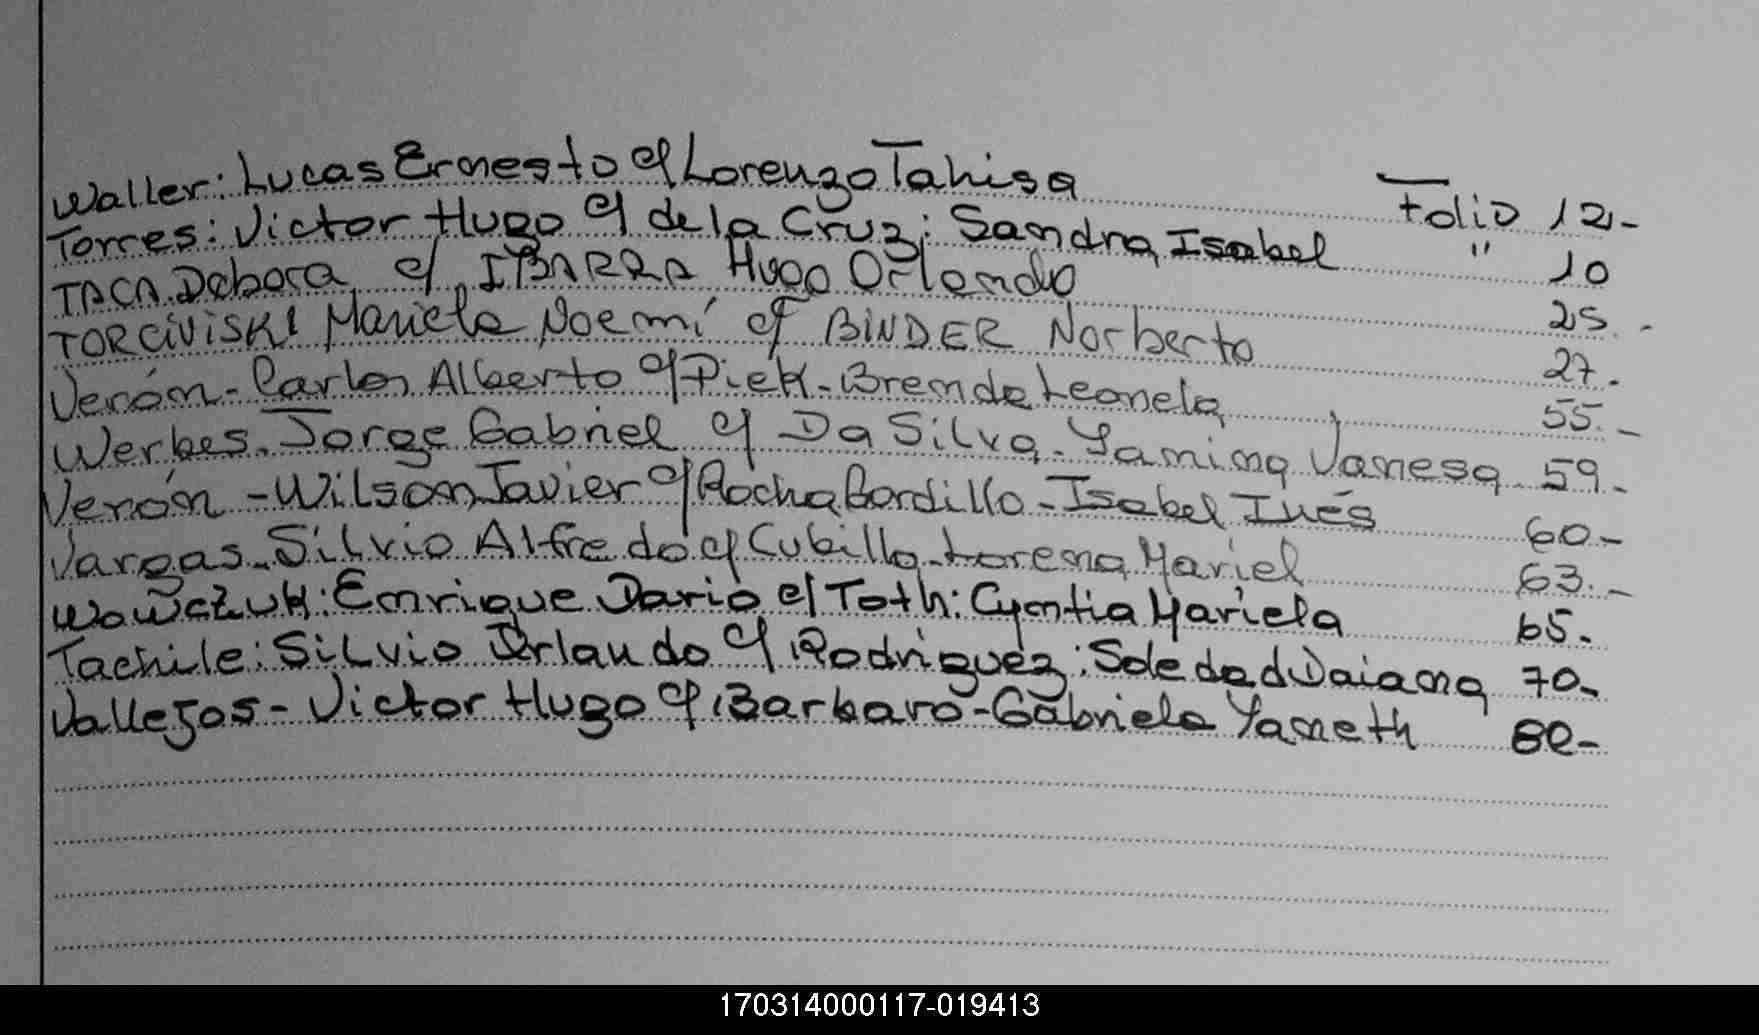 Waller: Lucas Ernesto c/ Lorenzo Tahisa Folio 12-
Torres: Victor Hugo c/ de la Cruz: Sandra Isabel " 10
TACA Debora c/ IBARRA Hugo Orlando 25.-
TORCIVISKI Mariela Noemí c/ BINDER Norberto 27.
Verón- Carlos Alberto c/ Piek- Brenda Leonela 55.-
Werbes. Jorge Gabriel c/ Da Silva- Yanina Vanesa 59.-
Verón - Wilson Javier c/ Rocha Gordillo - Isabel Inés 60-
Vargas- Silvio Alfredo c/ Cubilla- Lorena Mariel 63.-
Wowczuk: Enrique Dario c/ Toth: Cyntia Mariela 65.
Tachile: Silvio Orlando c/ Rodriguez: Soledad Daiana 70-
Vallejos- Victor Hugo c/ Barbaro- Gabriela Yaneth 80-
170314000117-019413